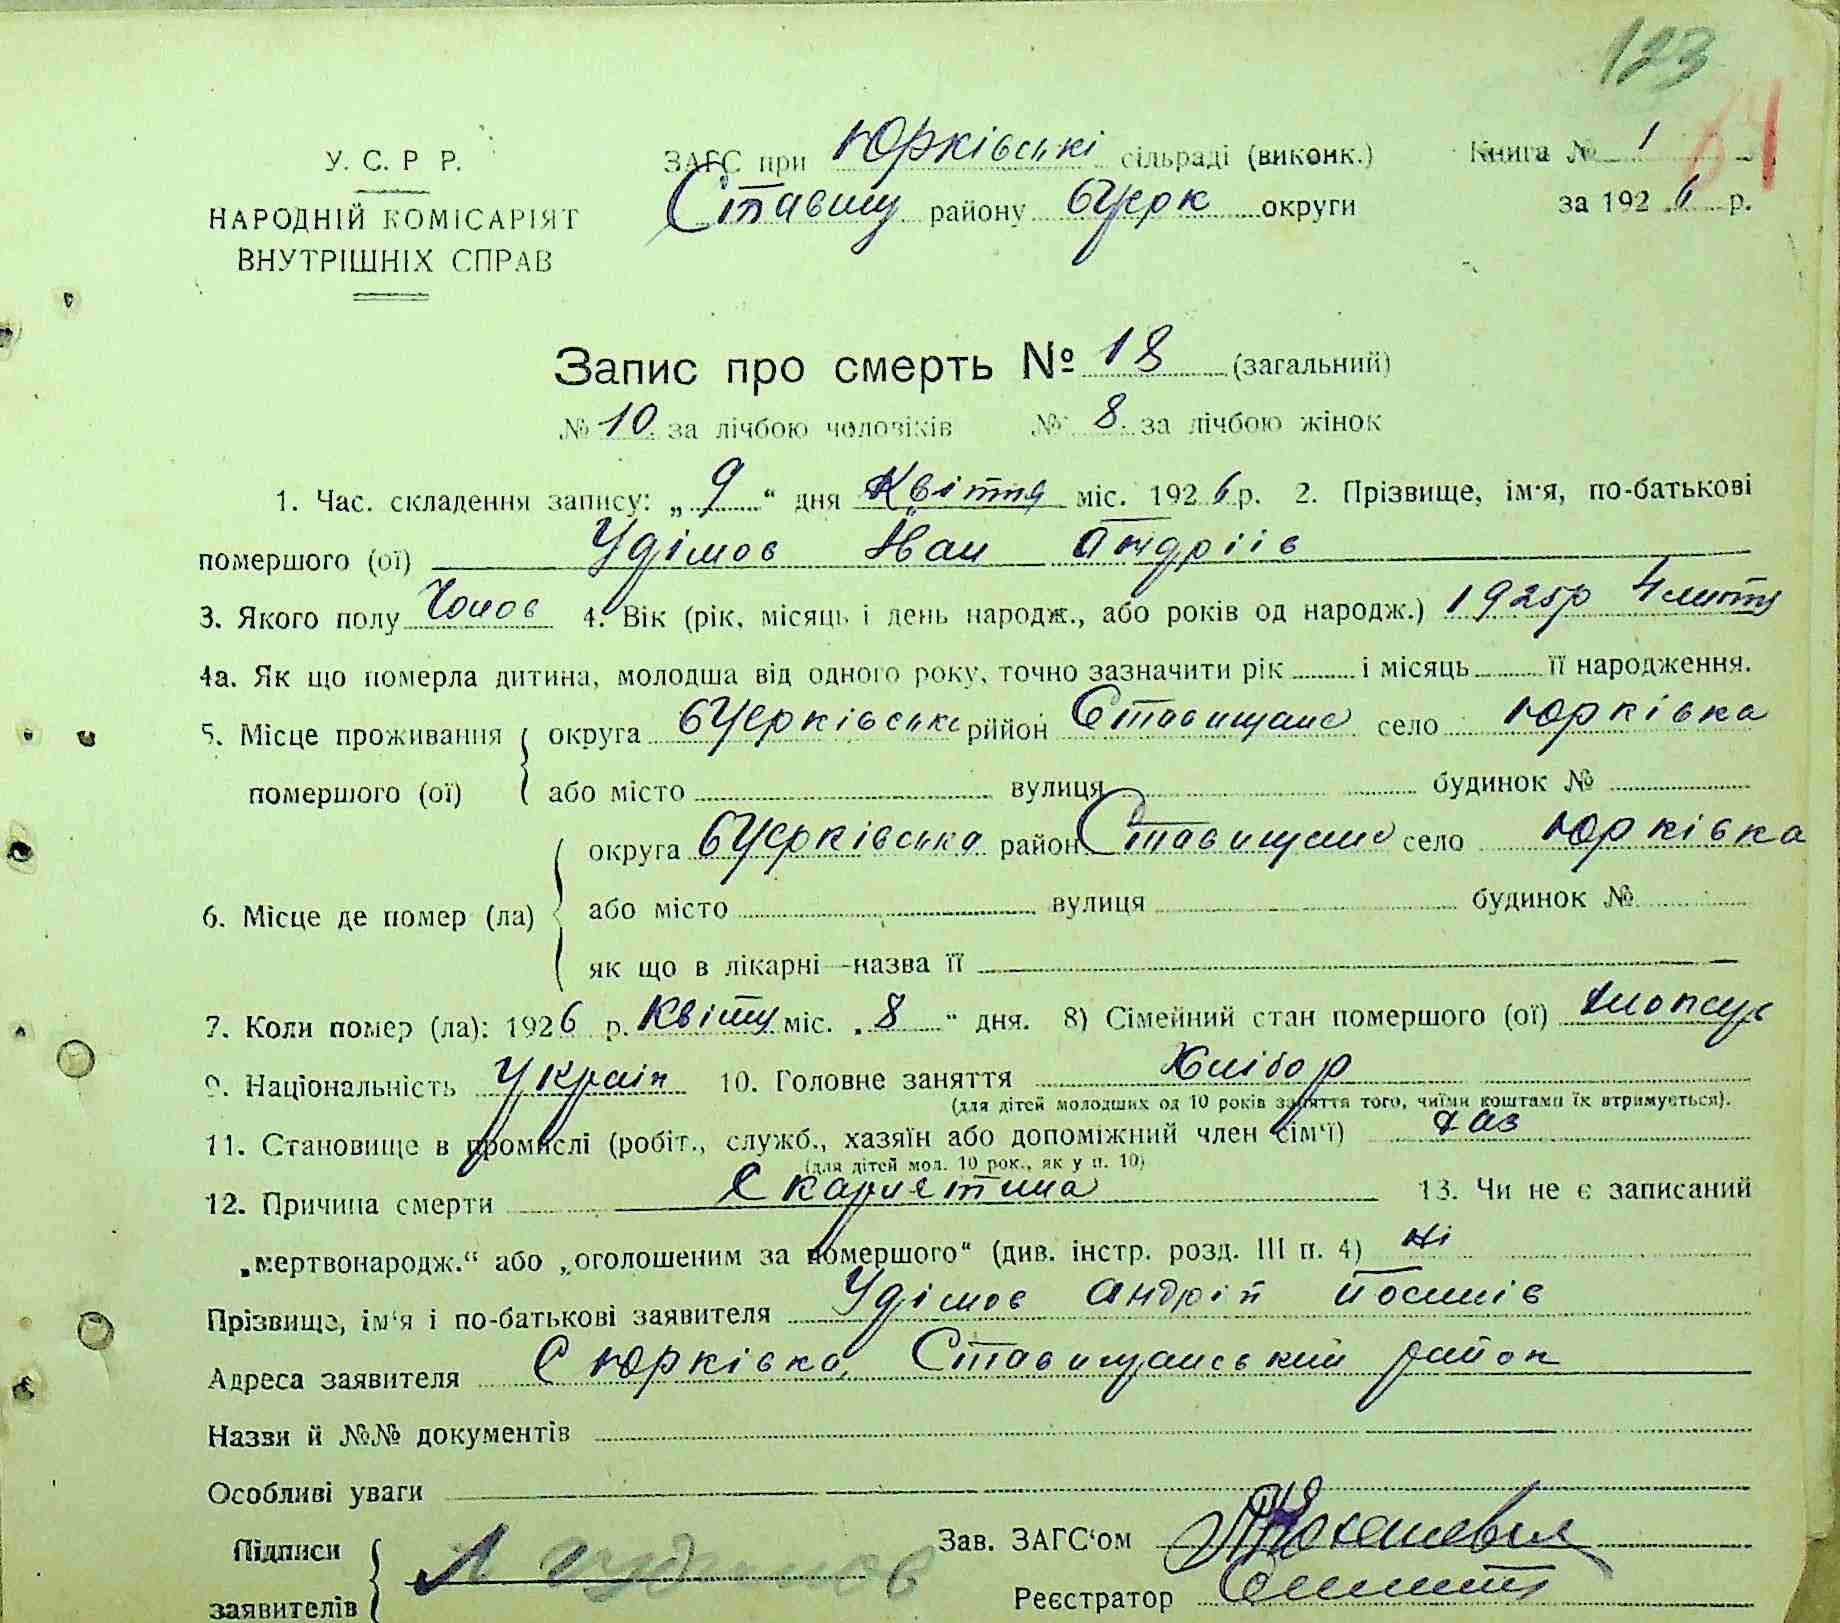 123
64
У. С. Р Р. ЗАГС при Юрківські сільраді (виконк.) Книга № 1
НАРОДНІЙ КОМІСАРІЯТ Ставищ району БЦерк округи за 1926 р.
ВНУТРІШНІХ СПРАВ
Запис про смерть № 18 (загальний)
№ 10 за лічбою чоловіків № 8 за лічбою жінок
1. Час. складення запису: „ 9 “ дня Квітня міс. 1926 р. 2. Прізвище, ім'я, по-батькові
помершого (ої) Удімов Іван Андріів
3. Якого полу Чолов 4. Вік (рік, місяць і день народж., або років од народж.) 1925р 4 лютя
4а. Як що померла дитина, молодша від одного року, точно зазначити рік і місяць її народження.
5. Місце проживання округа БЦерківськ рийон Ставищанс село Юрківка
помершого (ої) або місто вулиця будинок №
округа БЦерківська район Ставищанс село Юрківка
6. Місце де помер (ла) або місто вулиця будинок №
як що в лікарні—назва її
7. Коли помер (ла): 1926 р. Квітня міс. „ 8 “ дня. 8) Сімейний стан помершого (ої)
9. Національність Україн 10. Головне заняття Хлібор
(для дітей молодших од 10 років заняття того, чиїми коштами їх втримується).
11. Становище в промислі (робіт., служб., хазяїн або допоміжний член сім'ї) Хаз
(для дітей мол. 10 рок., як у п. 10)
12. Причина смерти Скарлятина 13. Чи не є записаний
„мертвонародж.“ або „оголошеним за помершого“ (див. інстр. розд. III п. 4) Ні
Прізвище, ім'я і по-батькові заявителя Удімов Андрій
Адреса заявителя С Юрківка, Ставищанський район
Назви й №№ документів
Особливі уваги
Підписи Зав. ЗАГС'ом
заявителів Реєстратор